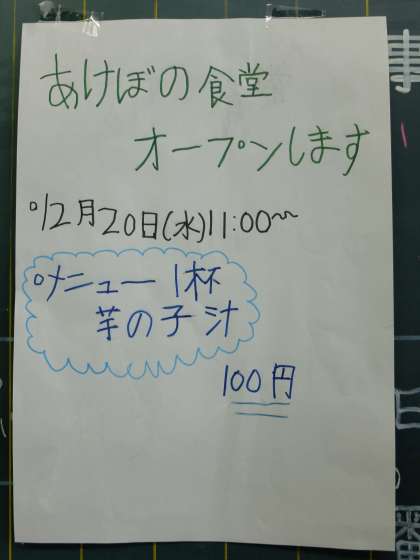 あけぼの食堂
オープンします
○12月20日(水)11:00~
○メニュー 1杯
芋の子汁
100円